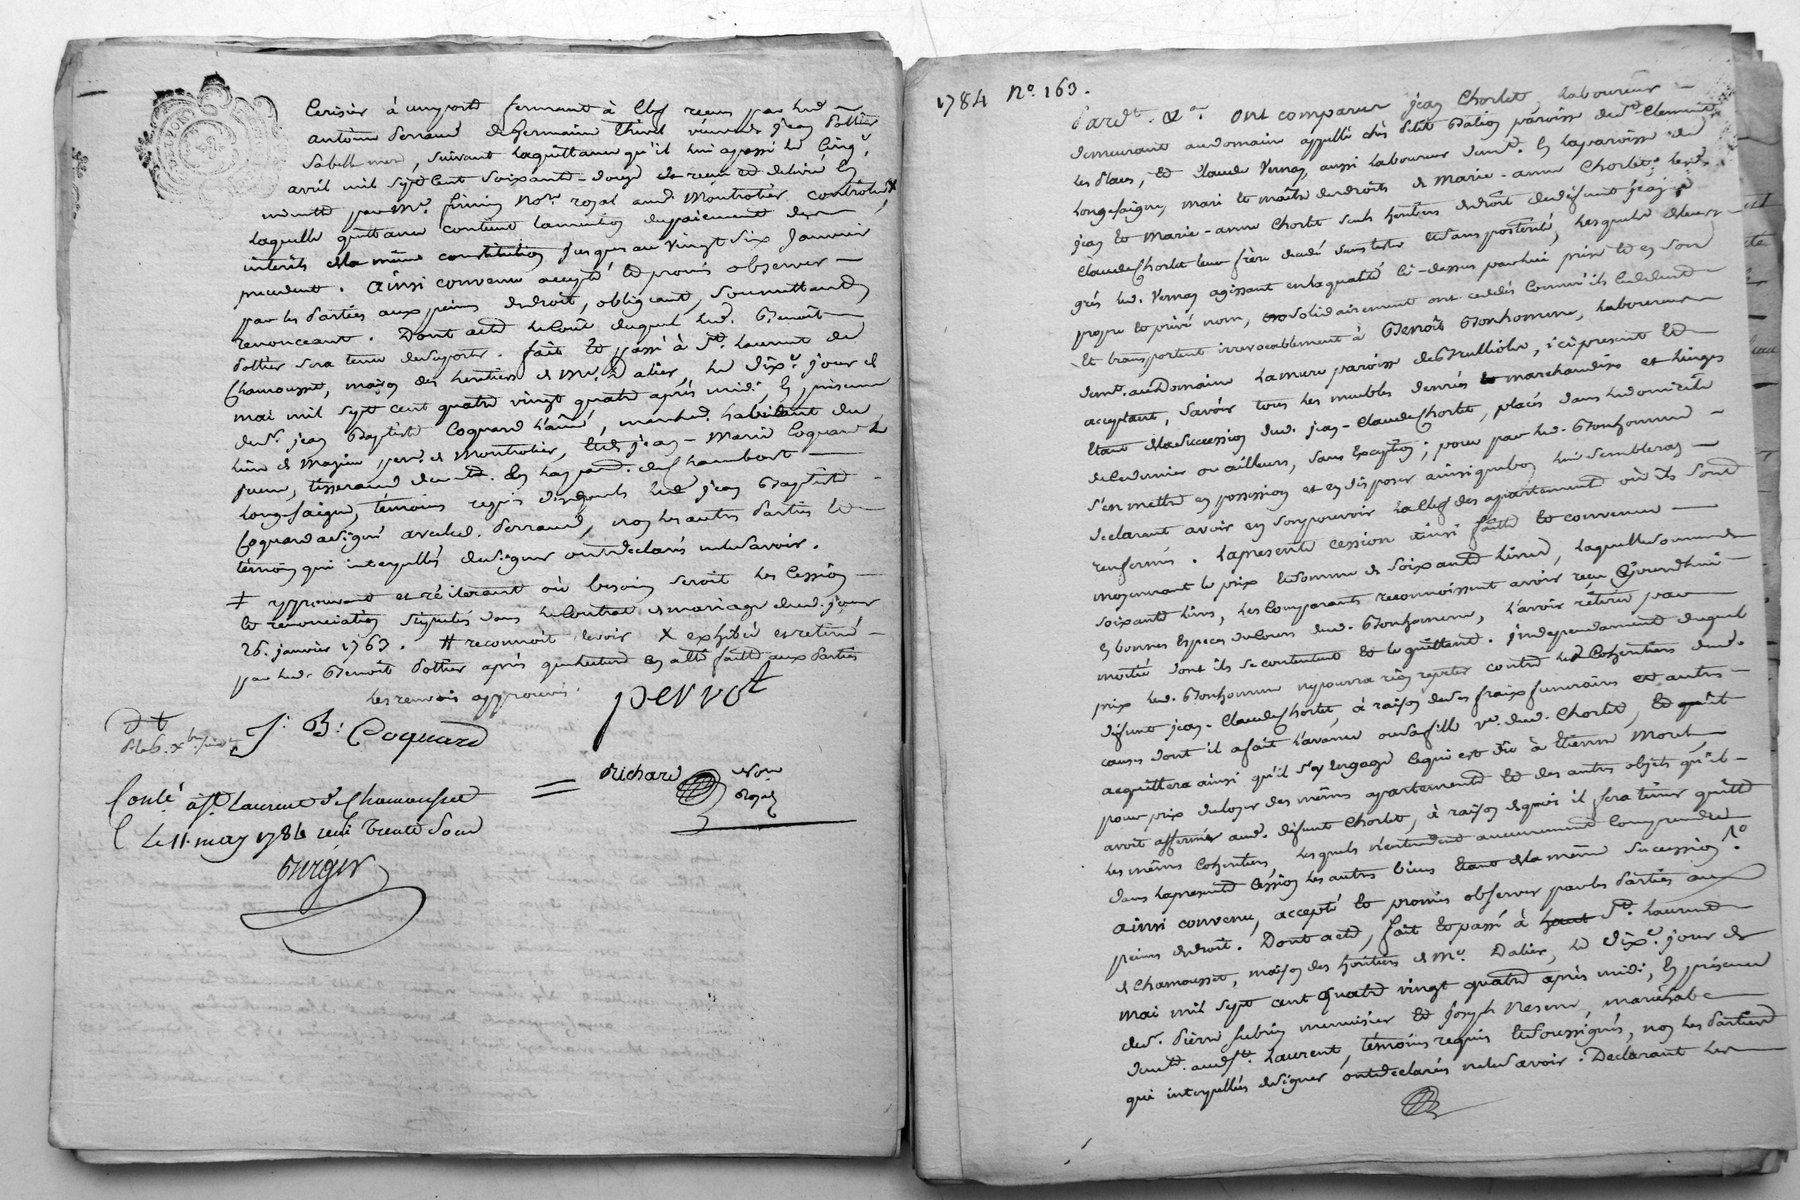 Cerisier à un port fermant à Clef reçus par led.
antoine Perraud de Germain Thivel jean Pottier
sa belle mere, suivant la quittance qu'il lui a passé le Cinq.e
avril mil sept Cent soixante-douze et reçue et delivré en
minutte par Me. firmin Nore. royal aud. Montrotier, controlée,
laquelle quittance contient la mention du paiement des
interets de la même constitution jusques au vingt six Janvier
precedent. Ainsi convenu accepté et promis observer -
par les Parties aux peines de droit, obligeant, Soumettant,
renonceant. Dont acte le Coût duquel led. Benoît
Pottier sera tenu de suporter. fait et passé à St. Laurent de
Chamousset, maison des heritiers de Mr. Dalier, le Dixe. jour de
mai mil sept cent quatre vingt quatre après midi, En presence
de Sr. jean Baptiste Coquard L'ainé, marchand habitant du
lieu de Mazieu, par. de Montrotier, et de jean-Marie Coquard le
jeune, tisserand demt. En la parr. de Chambost
Longessaigne, témoins requis desquels led. jean Baptiste
Coquard a signé avec led. Perraud, non les autres Parties et
témoin qui interpellés de signer ont declarés ne le savoir.
‡ approuvant et réiterant où besoin seroit les Cession
et renonciation stipulés dans le Contrat de mariage dud. jour
26. janvier 1763. # reconnoit devoir X exhibée et retirée -
par led. Benoit Pottier après que lecture en a été faite aux Parties
les renvois approuvés.
perrot
J. B: Coquard
Richard Nore.
Royal
Conlé. à St. Laurent de Chamousset
Le 11. may 1784 reçu Trente Sous
Burgin
1784 No. 163.
Pardt. &a. Ont comparus jean Chorlet laboureur
demeurant au domaine appellé chès Petit Balion paroisse de St. Clement
les Places, et Claude Vernay, aussi laboureur demt. En la paroisse de
Longessaigne, mari et maître des droits de Marie-anne Chorlet: lesd.
jean et Marie-anne Chorlet seuls heritiers de droit de defunt jean
Claude Chorlet leur frère decedé sans teste et sans posterité, lesquels de leur
grés led. Vernay agissant en la qualité Ci-dessus par lui prise et en son
propre et privé nom, solidairement ont cedés comme ils Cedent
Et transportent irrevocablement à Benoît Bonhomme, laboureur
demt. au Domaine Lamure paroisse de Brullioles, ici present et
acceptant, Savoir tous les meubles denrées marchandises et linges
Etant de la succession dud. jean-Claude Chorlet, placés dans le domicile
de Ce dernier ou ailleurs, sans Exception; pour par led. Bonhomme
s'en mettre en possession et en disposer ainsi que bon lui semblera
declarant avoir en son pouvoir la Clef des appartements où ils sont
renfermés. La presente cession ainsi faitte et convenue
moyennant le prix et somme de soixante livres, laquelle somme de
soixante livres, les Comparants reconnoissent avoir reçu Cejourdhui
en bonnes Especes du Cours dud. Bonhomme, l'avoir retiré par
moitié dont ils se contentent et le quittent. independament duquel
prix led. Bonhomme ne pourra rien repeter contre les Cohéritiers dud.
defunt jean-Claude Chorlet, à raison de ses fraix funeraires et autres
causes dont il a fait l'avance ou sa fille ve. dud. Chorlet, Et
acquittera ainsi qu'il s'y engage Ce qui est dû à Etienne Morel,
pour prix du loyer des mêmes apartements et des autres objets qu'il
avoit affermé aud. defunt Chorlet, à raison de quoi il fera tenir quitte
les mêmes Cohéritiers, lesquels n'entendent aucunement Comprendre
dans la presente Cession les autres biens Etant de la même succession.
Ainsi convenu, accepté et promis observer par les Parties aux
peines de droit. Dont acte, fait et passé à St. Laurent
de Chamousset, maison des heritiers de Mr. Dalier, le Dixe. jour de
Mai mil sept cent Quatre vingt quatre après midi, En présence
de Sr. Pierre Subrin menuisier et Joseph Nesme, maréchal
demt. aud. St. Laurent, témoins requis et soussignés, non les Parties
qui interpellées de signer ont declarés ne le savoir. Declarant les